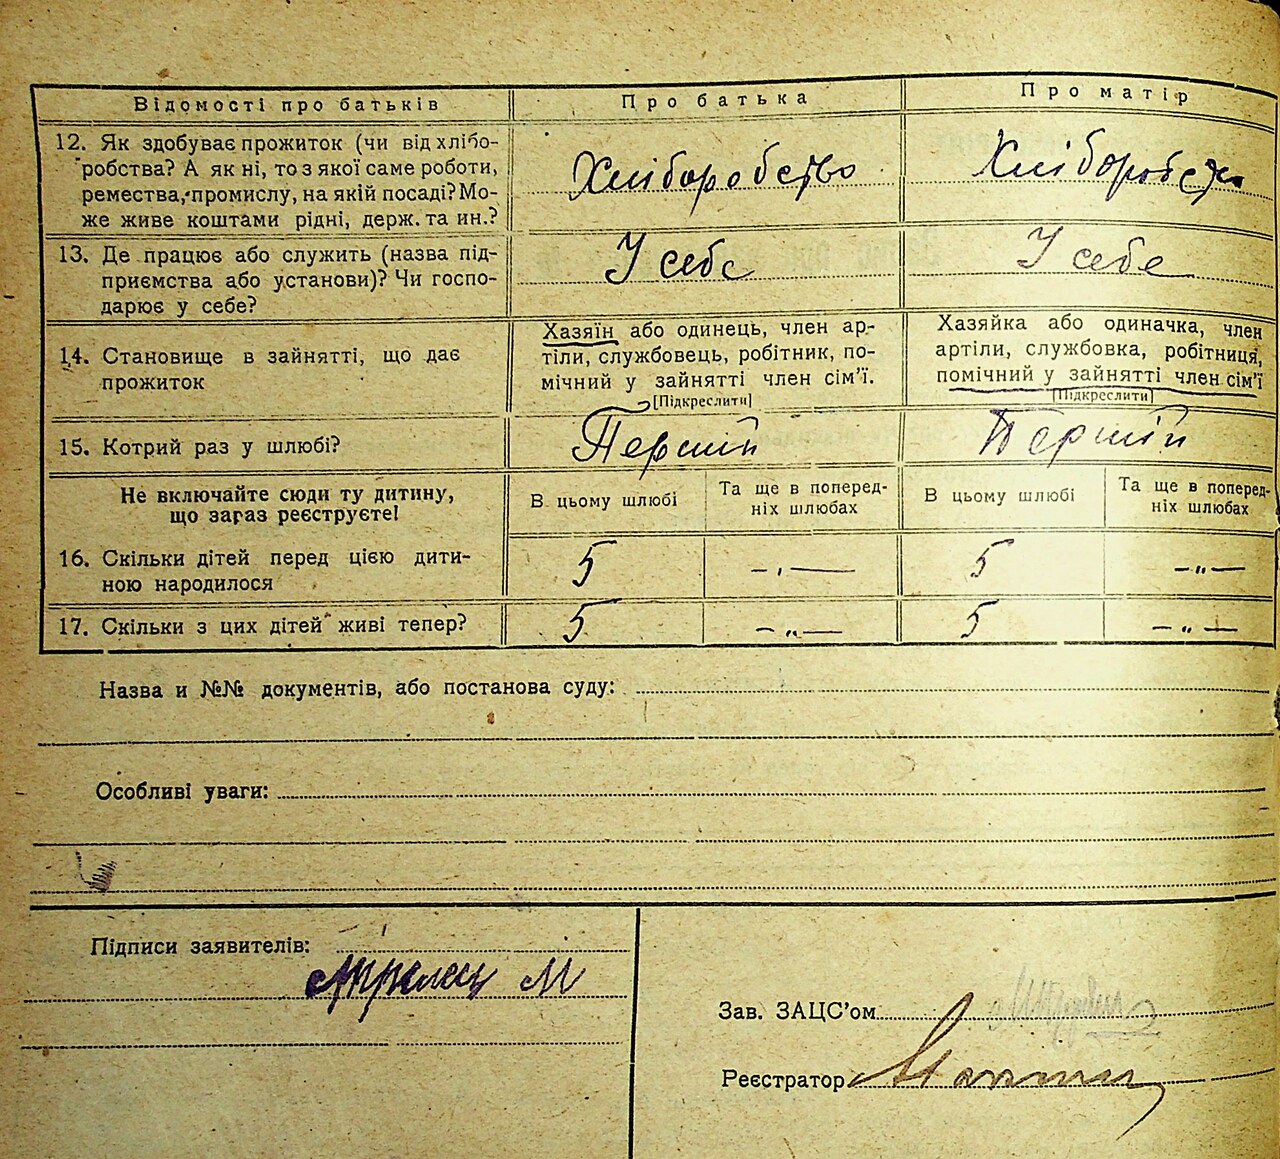 Відомості про батьків
Про батька
Про матір
12. Як здобуває прожиток (чи від хлібо-
робства? А як ні, то з якої саме роботи,
ремества, промислу, на якій посаді? Мо-
же живе коштами рідні, держ. та ин.?
Хліборобство
Хліборобство
13. Де працює або служить (назва під-
приємства або установи)? Чи госпо-
дарює у себе?
У себе
У себе
14. Становище в зайнятті, що дає
прожиток
Хазяїн або одинець, член ар-
тіли, службовець, робітник, по-
мічний у зайнятті член сім'ї.
[Підкреслити]
Хазяйка або одиначка, член
артіли, службовка, робітниця,
помічний у зайнятті член сім'ї
[Підкреслити]
15. Котрий раз у шлюбі?
Перший
Перший
Не включайте сюди ту дитину,
що зараз реєструєте!
В цьому шлюбі
Та ще в поперед-
ніх шлюбах
В цьому шлюбі
Та ще в поперед-
ніх шлюбах
16. Скільки дітей перед цією дити-
ною народилося
5
—„—
5
—„—
17. Скільки з цих дітей живі тепер?
5
—„—
5
—„—
Назва и №№ документів, або постанова суду:
Особливі уваги:
Підписи заявителів:
М
Зав. ЗАЦС'ом
Реєстратор